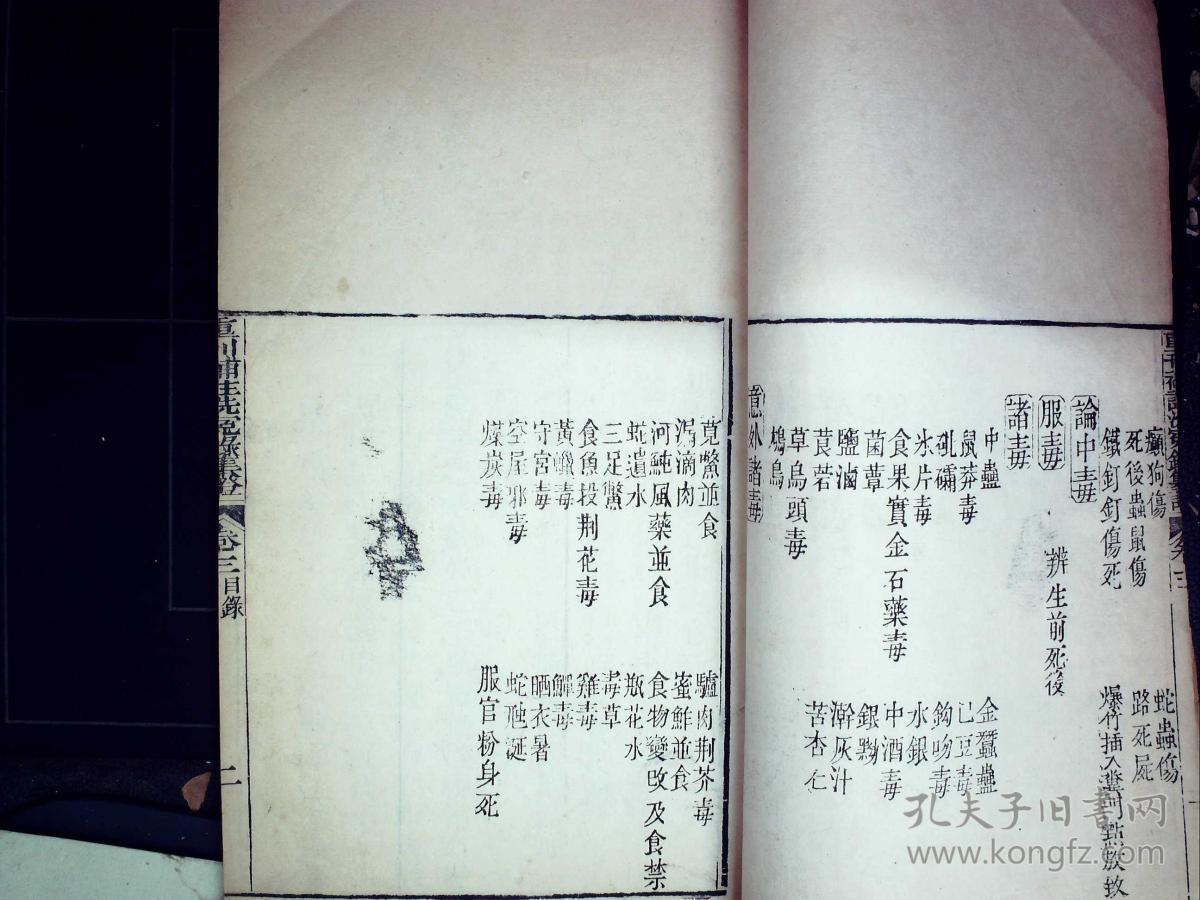 癲狗傷　蛇蟲傷
死後蟲鼠傷　路死屍
鐵釘釘傷死　爆竹插入糞門點放致
論中毒
服毒　辨生前死後
諸毒
中蠱　金蠶蠱
鼠莽毒　巴豆毒
砒礵　鈎吻毒
氷片毒　水銀
食果實金石藥毒　中酒毒
菌蕈　銀黝
鹽滷　澣灰汁
莨菪　苦杏仁
草烏頭毒
鴆鳥
意外諸毒
莧鱉並食　驢肉荆芥毒
漏滴肉　蜜鮮並食
河魨風藥並食　食物變改及食禁
蛇遺水　瓶花水
三足鱉　毒草
食魚投荆花毒　雞毒
黃蠟毒　鱓毒
守宮毒　晒衣暑
空屋邪毒　蛇虺涎
煤炭毒　服官粉身死
重刊補註洗寃錄集證　卷三目錄　二
孔夫子旧書网
www.kongfz.com